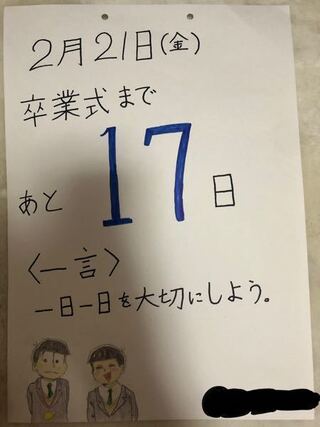 2月21日(金)
卒業式まで
あと 17 日
〈一言〉
一日一日を大切にしよう。